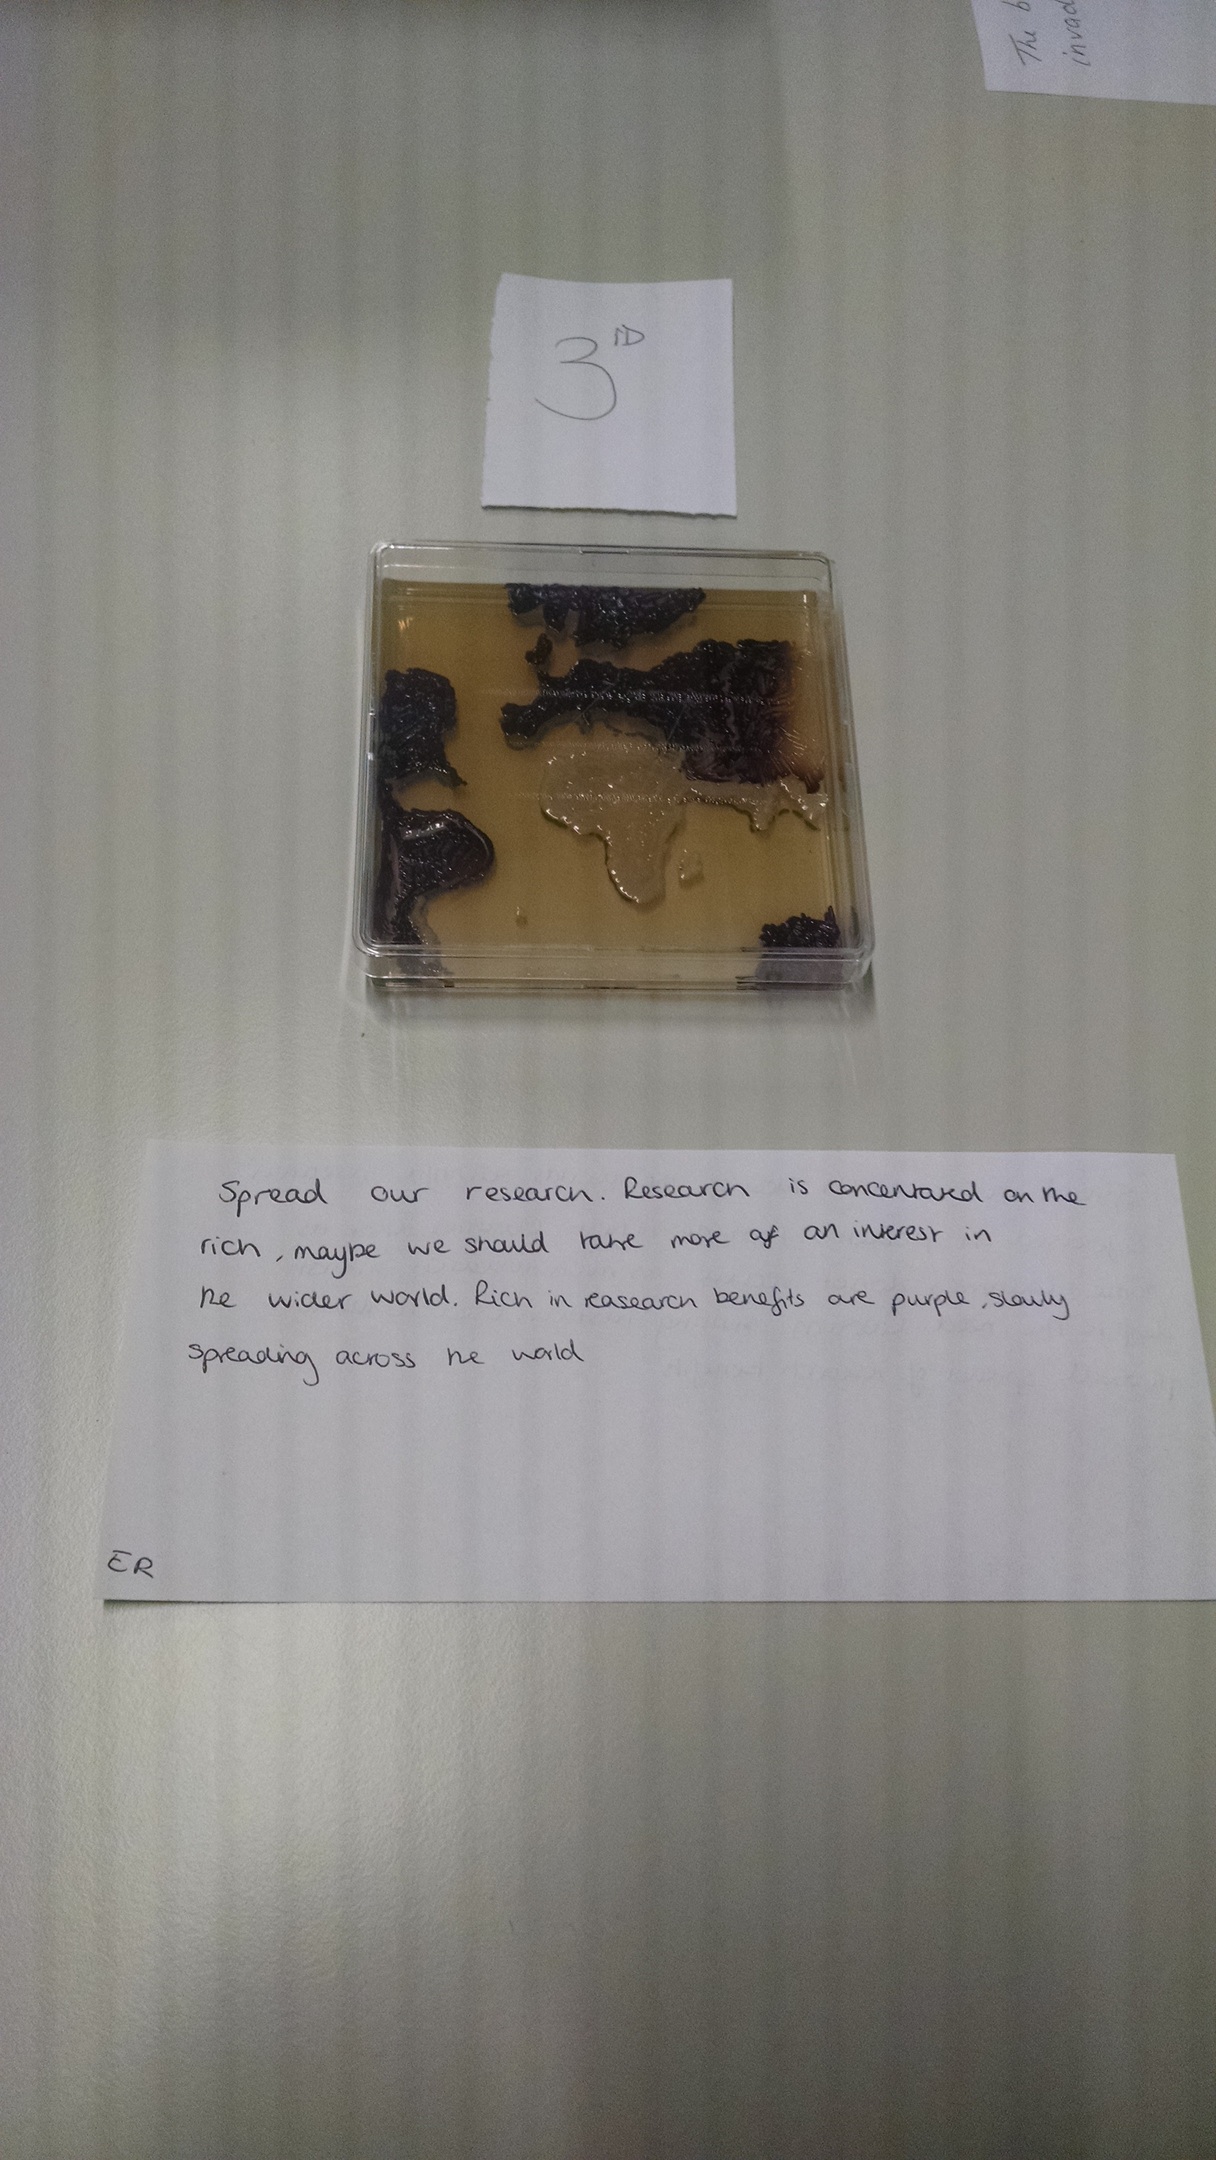 The b
invad
3RD
Spread our research. Research is concentrated on the
rich, maybe we should take more of an interest in
the wider world. Rich in reasearch benefits are purple, slowly
spreading across the world
ER